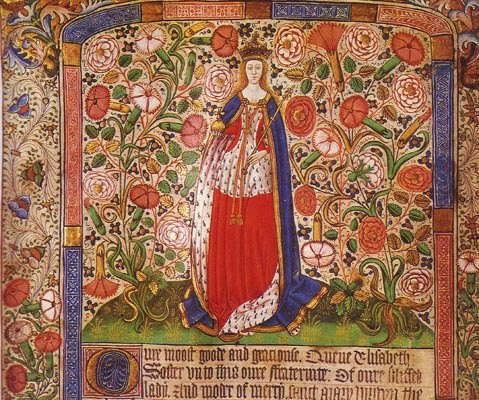 Oure moost goode and graciouse Quene Elisabeth
Soster vn to this oure ffraternite: Of oure blissed
lady. And moder of mercy. sanct Mary virgyn the